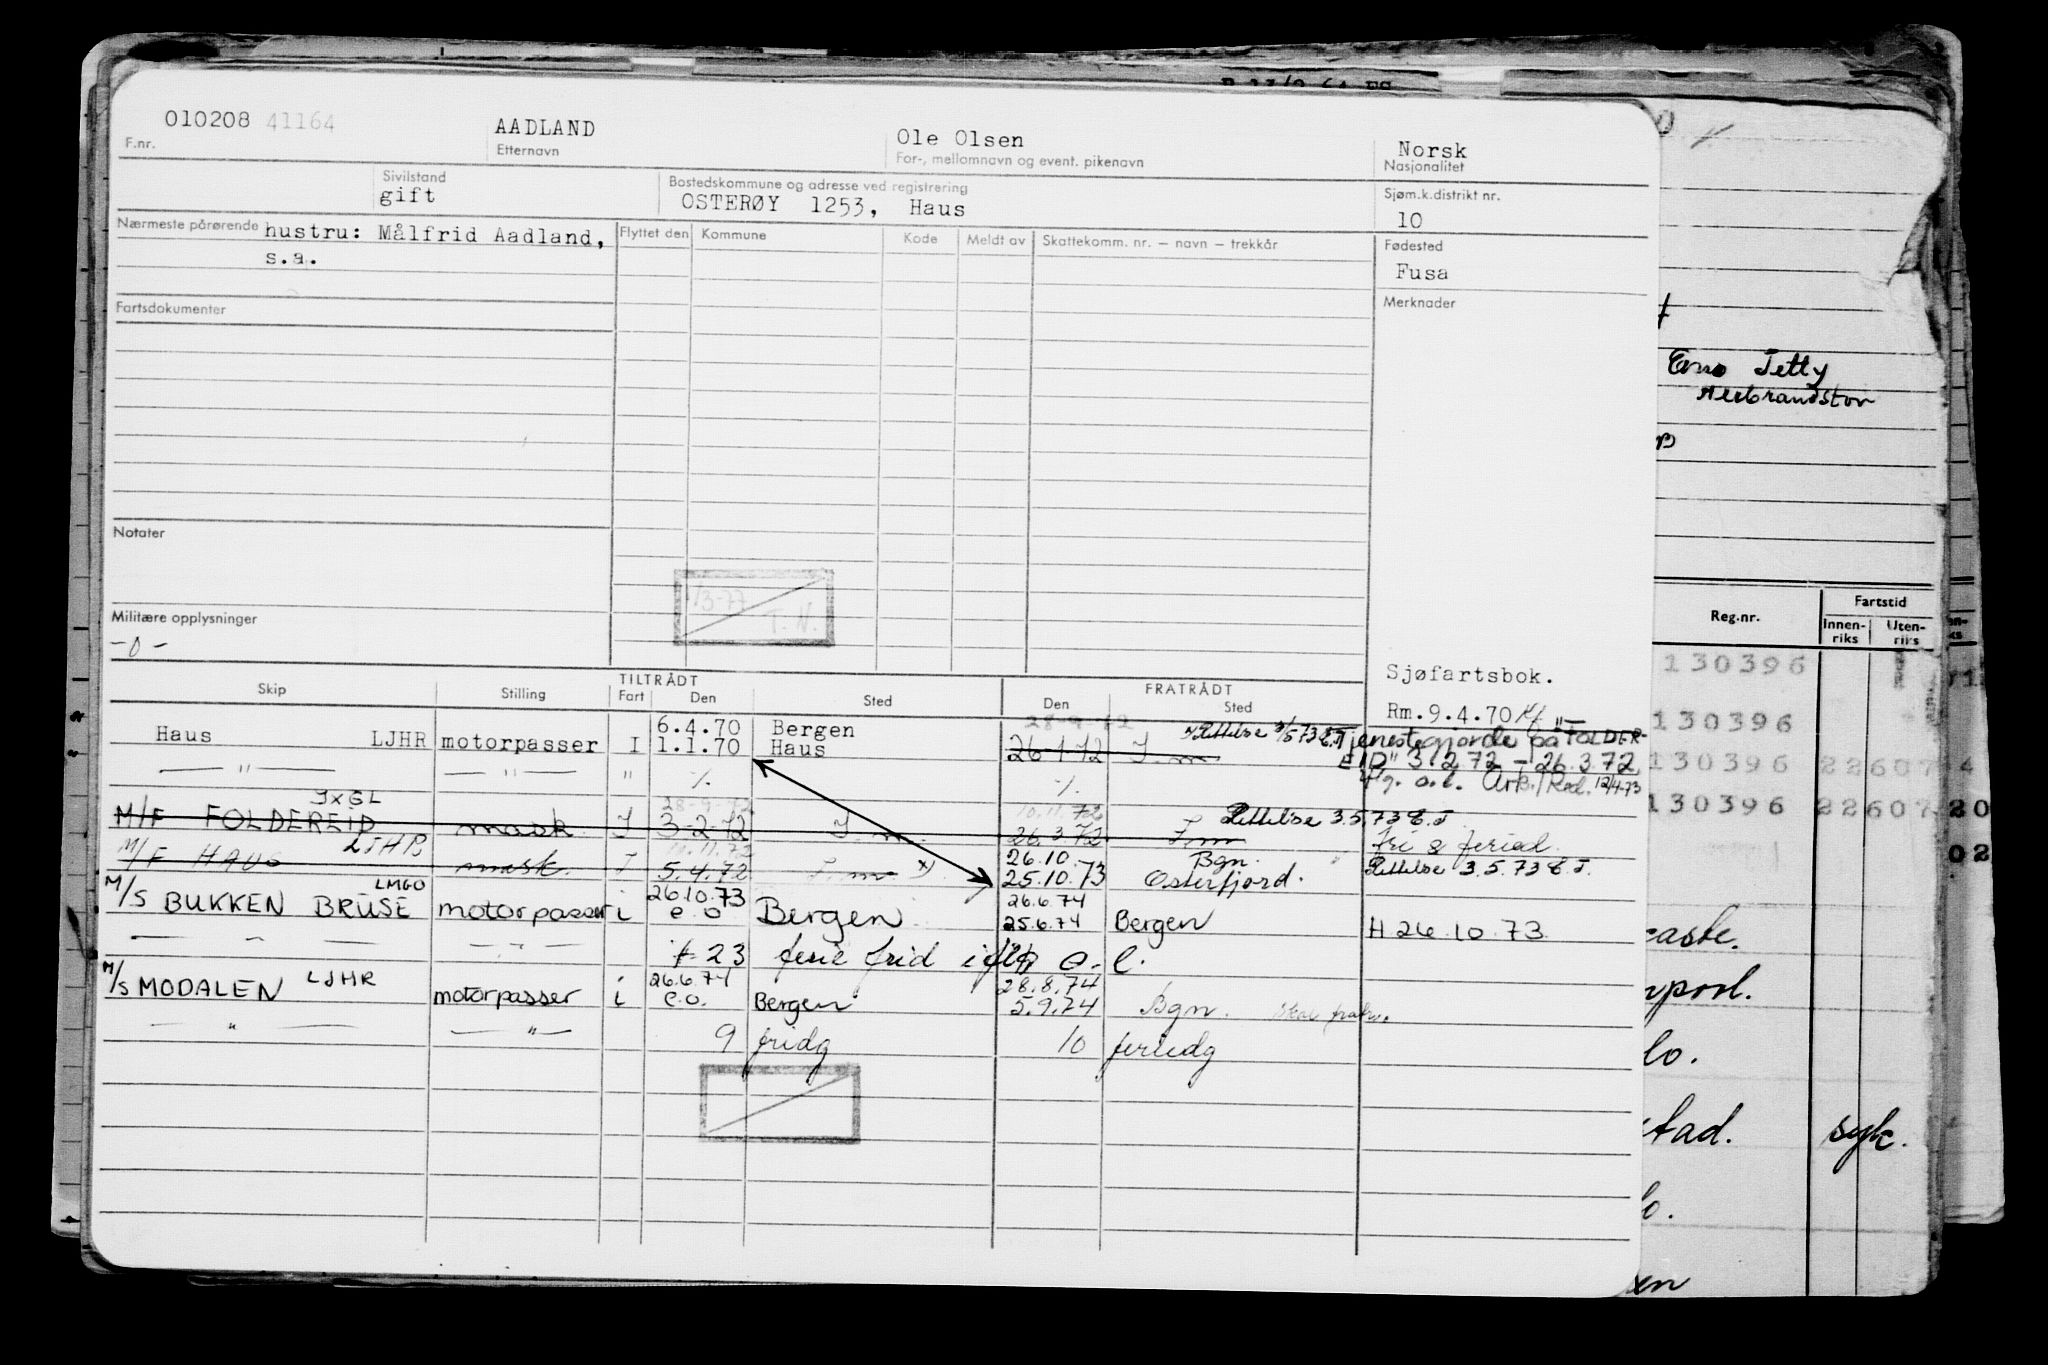 010208 41164 AADLAND Ole Olsen Norsk
F.nr. Etternavn For-, mellomnavn og event. pikenavn Nasjonalitet
Sivilstand Bostedskommune og adresse ved registrering Sjøm.k.distrikt nr.
gift OSTERØY 1253, Haus 10
Nærmeste pårørende hustru: Målfrid Aadland, Flyttet den Kommune Kode Meldt av Skattekomm. nr. – navn – trekkår Fødested
s.a. Fusa
Fartsdokumenter Merknader
Notater
T. N.
Militære opplysninger
-0-
Sjøfartsbok.
Skip Stilling TILTRÅDT FRATRÅDT
Fart Den Sted Den Sted
Rm.9.4.70
6.4.70 Bergen 28-9-72 Rettelse 3/5 73 E.T
Haus LJHR motorpasser I 1.1.70 Haus 26-1-72 I.m Tjenestegjorde på "FOLDER-
EID" 3.2.72 – 26.3.72
— " — — " — " ./. ./. o.l. Ark./Red. 12/4-73
JXGL 28-9-72 10.11.72 Rettelse 3.5.73 E.T
M/F FOLDEREID mask I 3-2-72 I. m 26.3.72 I.m fri & feried.
LJHR 11.11.72 26.10. Bgn.
M/F HAUS mask. I 5.4.72 I. m x) 25.10.73 Osterfjord. Rettelse 3.5.73 E.T.
LMGO 26.10.73 26.6.74
M/S BUKKEN BRUSE motorpasser i e.o Bergen 25.6.74 Bergen H 26.10.73
— " — — " — 23 ferie frid o.l.
26.6.74 28.8.74
M/S MODALEN LJHR motorpasser i e.o. Bergen 5.9.74 Bgn.
— " — — " — 9 fridg 10 feriedg
Tetty
Herbrandston
Reg.nr. Fartstid
Innen-riks Uten-riks
130396
130396
130396 22607 4
130396 22607 20
02
syk.